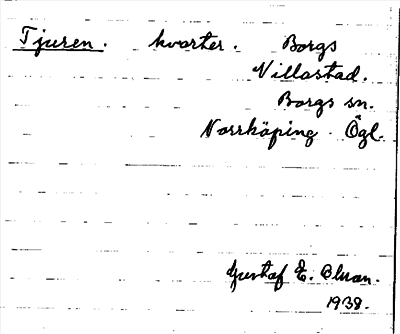 Tjuren. kvarter. Borgs
Villastad.
Borgs sn.
Norrköping. Ögl.
Gustaf E. Bluan.
1938.